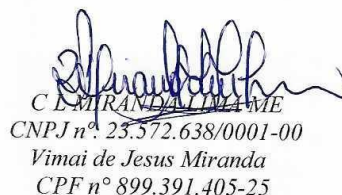 C L MIRANDA LIMA ME
CNPJ nº: 23.572.638/0001-00
Vimai de Jesus Miranda
CPF n° 899.391.405-25